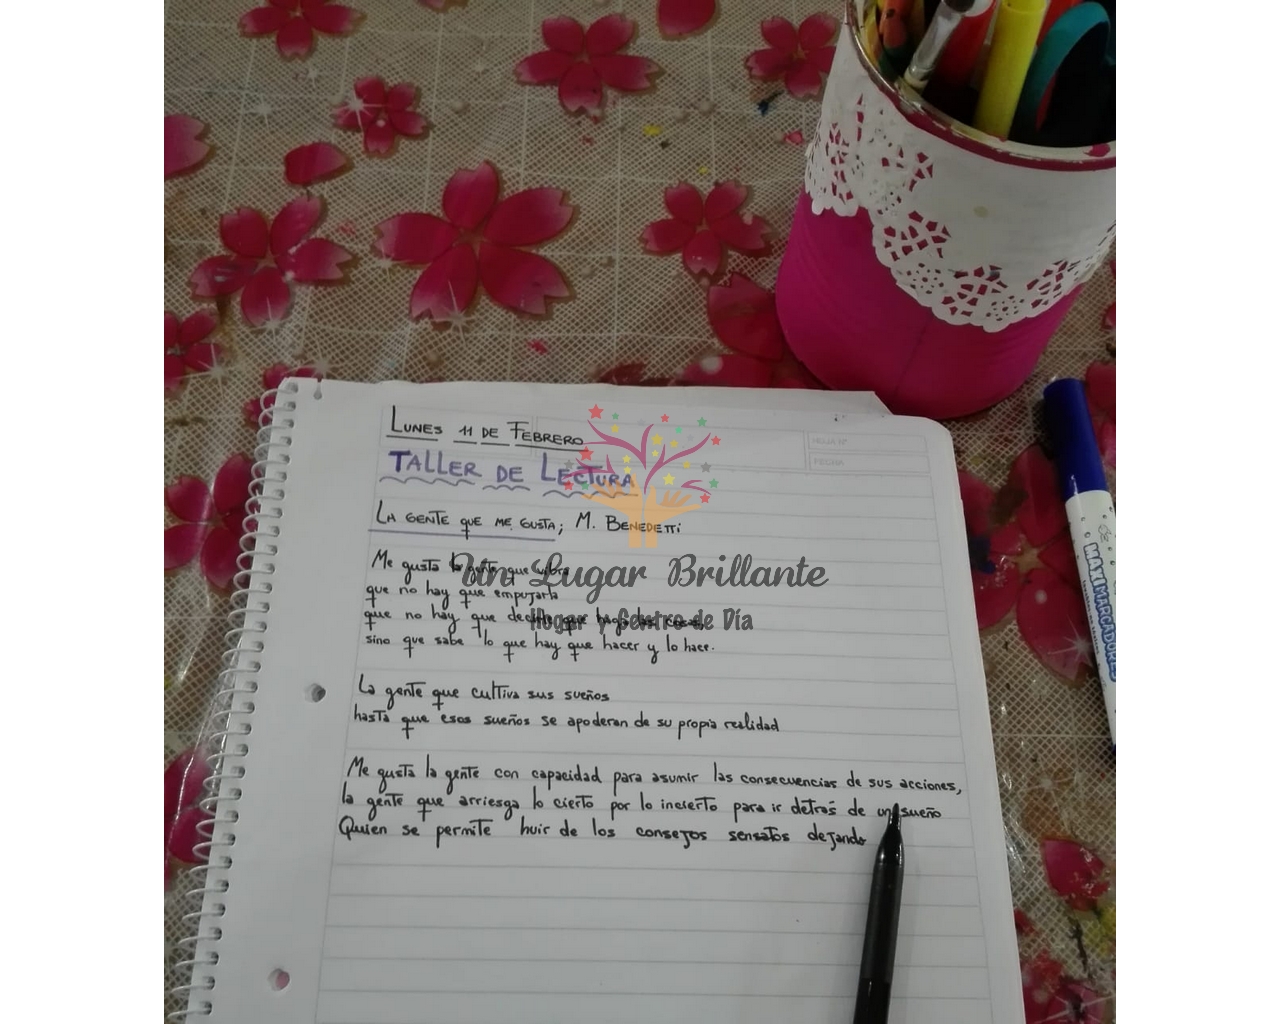 LUNES 11 DE FEBRERO
TALLER DE LECTURA
LA GENTE QUE ME GUSTA; M. BENEDETTI
Me gusta la gente que vibra
que no hay que empujarla
que no hay que decirle que haga las cosas,
sino que sabe lo que hay que hacer y lo hace.
La gente que cultiva sus sueños
hasta que esos sueños se apoderan de su propia realidad
Me gusta la gente con capacidad para asumir las consecuencias de sus acciones,
la gente que arriesga lo cierto por lo incierto para ir detrás de un sueño
Quien se permite huir de los consejos sensatos dejando
HOJA Nº
FECHA
Un Lugar Brillante
Hogar y Centro de Día
MAXIMARCADORES